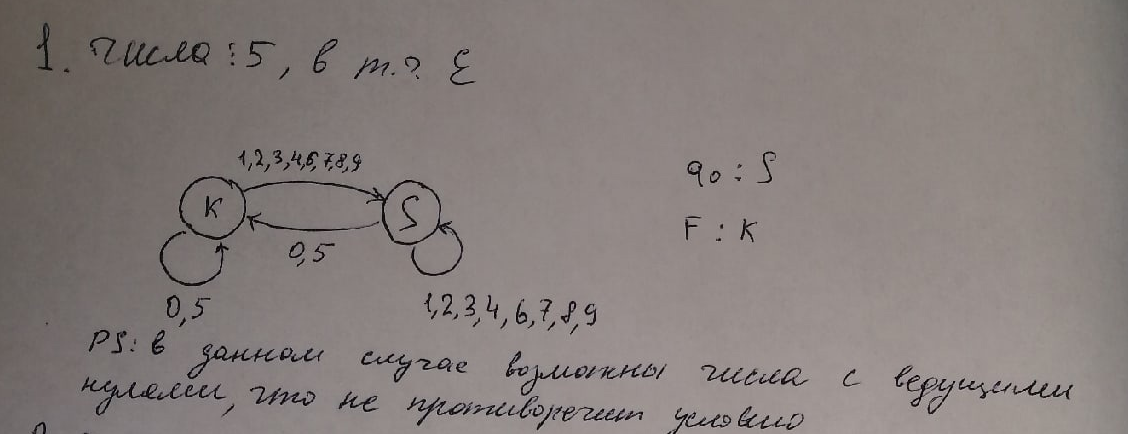 1. Числа ⋮ 5, в т.ч. ε
1,2,3,4,6,7,8,9
K
S
0,5
0,5
1,2,3,4,6,7,8,9
q0 : S
F : K
PS: в данном случае возможны числа с ведущими
нулями, что не противоречит условию